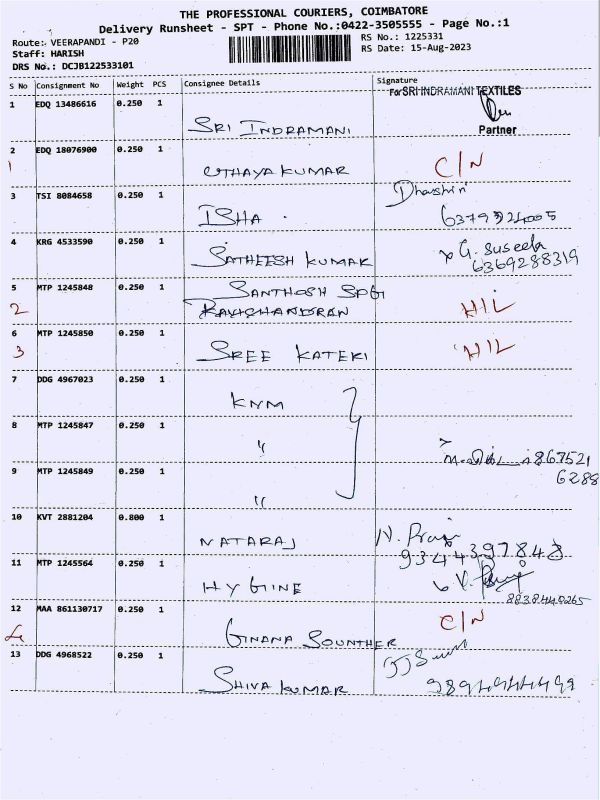 THE PROFESSIONAL COURIERS, COIMBATORE
Delivery Runsheet - SPT - Phone No.:0422-3505555 - Page No.:1
Route: VEERAPANDI - P20
Staff: HARISH
DRS No.: DCJB122533101
RS No.: 1225331
RS Date: 15-Aug-2023
S No Consignment No Weight PCS Consignee Details Signature
1 EDQ 13486616 0.250 1 SRI INDRAMANI
For SRI INDRAMANI TEXTILES
Partner
2 EDQ 18076900 0.250 1 UTHAYA KUMAR C/N
1
3 TSI 8084658 0.250 1 ISHA Dharshini
4 KRG 4533590 0.250 1 SATHEESH KUMAR x G. Suseela
6369288319
5 MTP 1245848 0.250 1 SANTHOSH SPG
2 RAVICHANDRAN H/L
6 MTP 1245850 0.250 1 SREE KATERI H/L
3
7 DDG 4967023 0.250 1 KNM
8 MTP 1245847 0.250 1 "
867521
6288
9 MTP 1245849 0.250 1 "
10 KVT 2881204 0.800 1 NATARAJ N.
9344397848
11 MTP 1245564 0.250 1 HYGINE
8838448265
12 MAA 861130717 0.250 1 GNANA SOUNTHER C/N
4
13 DDG 4968522 0.250 1 SHIVA KUMAR